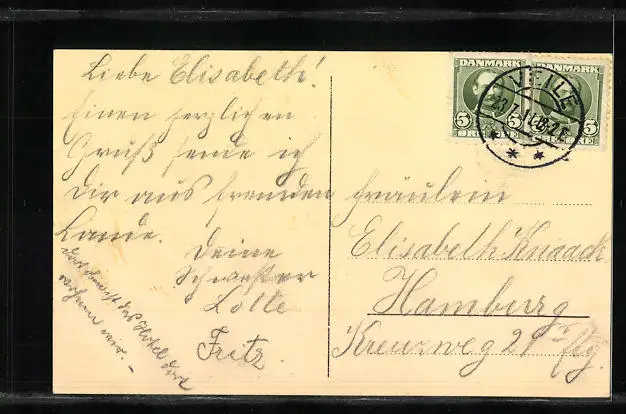 Liebe Elisabeth!
Einen herzlichen
Gruß sende ich
dir aus fremden
Lande.
Deine
Schwester
Lotte
Fritz.
dort das Hotel dort
wohnen wir.
DANMARK
DANMARK
5 5 5
ØRE
VEJLE
Fräulein
Elisabeth Knaack
Hamburg
Kreuzweg 21